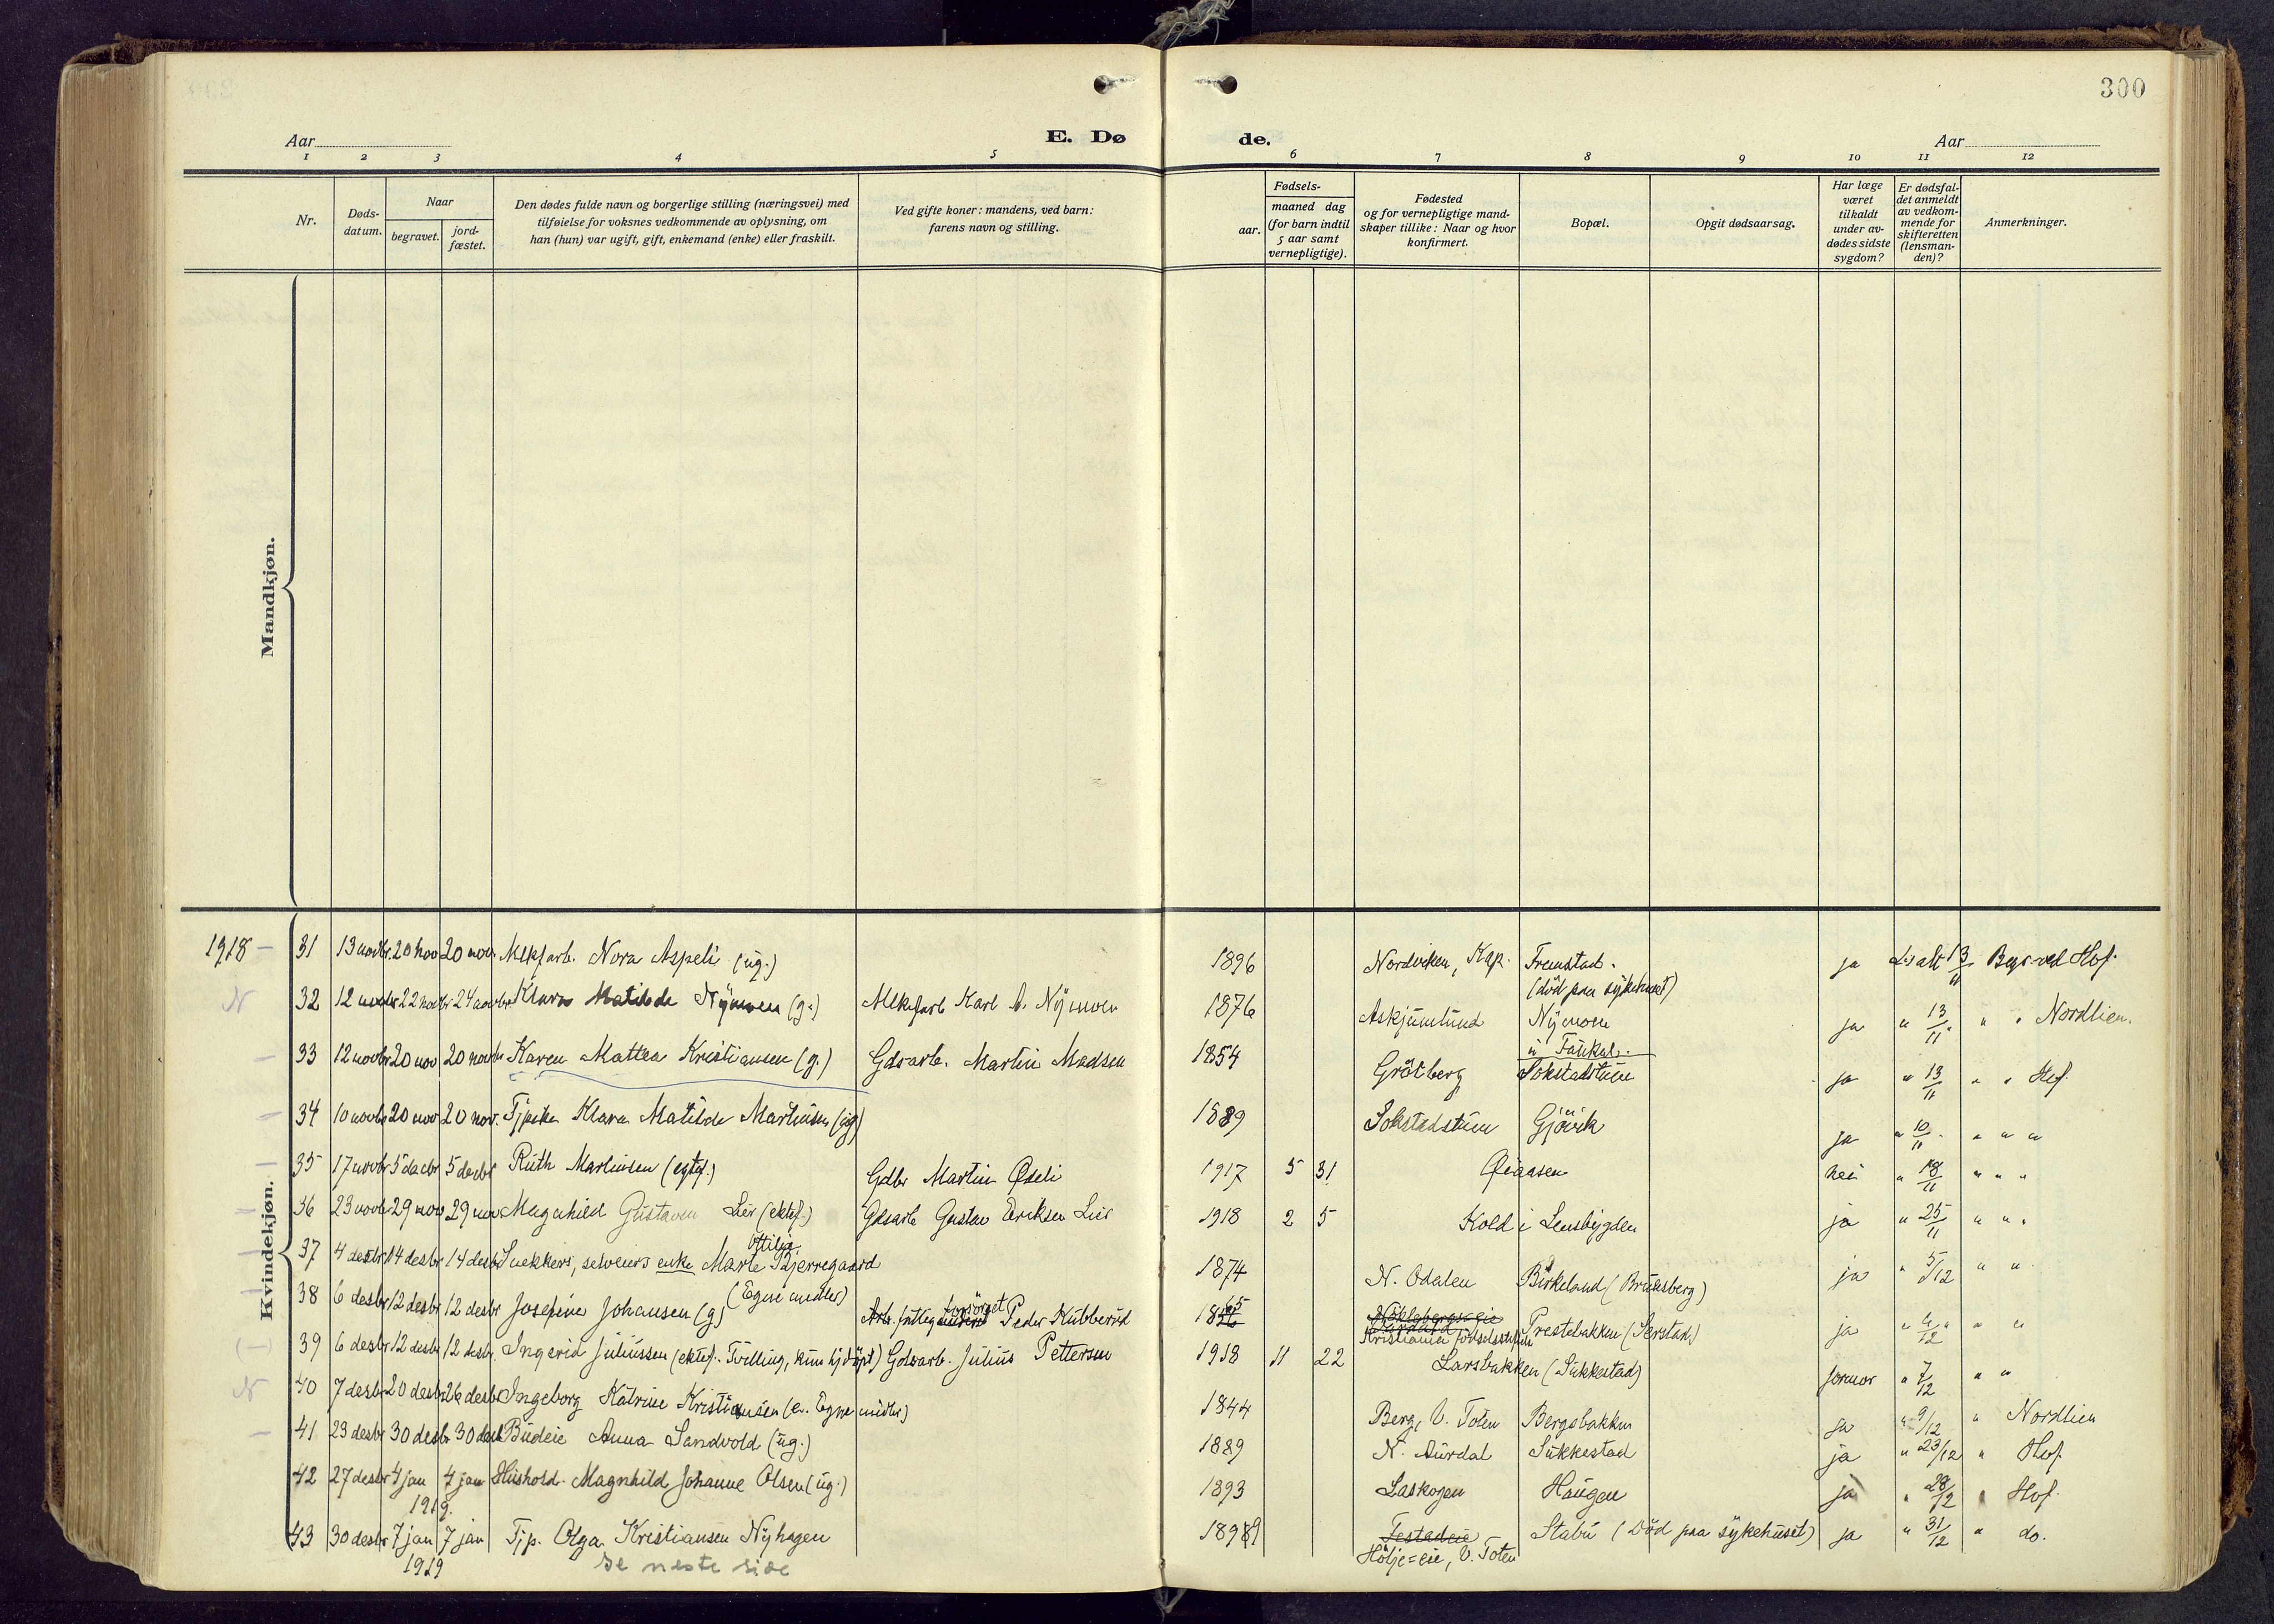 300
Aar
E. Dø
de.
Aar
1 2 3 4 5 6 7 8 9 10 11 12
Nr.
Døds-datum.
Naar
begravet.
jord-fæstet.
Den dødes fulde navn og borgerlige stilling (næringsvei) med
tilføielse for voksnes vedkommende av oplysning, om
han (hun) var ugift, gift, enkemand (enke) eller fraskilt.
Ved gifte koner: mandens, ved barn:
farens navn og stilling.
Fødsels-
aar.
maaned dag
(for barn indtil
5 aar samt
vernepligtige).
Fødested
og for vernepligtige mand-
skaper tillike: Naar og hvor
konfirmert.
Bopæl.
Opgit dødsaarsag.
Har læge
været
tilkaldt
under av-
dødes sidste
sygdom?
Er dødsfal-
det anmeldt
av vedkom-
mende for
skifteretten
(lensman-
den)?
Anmerkninger.
Mandkjøn.
Kvindekjøn.
1918 – 31 13 novbr. 20 nov 20 nov. Mekfarb. Nora Aspeli (ug.) 1896 Nordviken, Kap. Fremstad. (död paa sykehuset) ja 13/11 Begr. ved Hof.
N 32 12 novbr 22 novbr 24 novbr Klara Matilde Nymoen (g.) Mekfarb Karl Nymoen 1876 Askjumlund Nymoen ja " 13/11 " " Nordlien.
– 33 12 novbr 20 nov 20 novbr Karen Mattea Kristiansen (g.) Gdsarb. Martin Madsen 1854 Grötberg Sokstadstuen ja " 13/11 " " Hof
– 34 10 novbr 20 nov 20 nov. Tjpike Klara Matilde Martinsen (ug) 1889 Sokstadstuen Gjövik ja " 10/11 " " "
– 35 17 novbr 5 decbr 5 decbr Ruth Martinsen (egtef.) Gdbr Martin Ødeli 1917 5 31 nei " 18/11 " " "
36 23 novbr 29 nov 29 nov Magnhild Gustava Lier (ektef.) Gdsarb Gustav Eriksen Lier 1918 2 5 Kold i Lensbygden ja " 25/11 " " "
37 4 desbr 14 desbr 14 desbr enke Marte Ottilia Bjerregaard (Egne midler) 1874 N. Odalen Birkeland (Bruksberg) ja " 5/12 " "
38 6 desbr 12 desbr 12 desbr Josefine Johansen (g) Arb. fattig forsörget Peder Kubberud 1865 Kristiania födselsstiftelse Prestebakken (Serstad) ja " 6/12 " " "
(–) 39 6 desbr 12 desbr 12 desbr. Ingerid Juliussen (ektef. Tvilling, kun hj.döpt) Gdsarb. Julius Pettersen 1918 11 22 Larsbakken (Sukkestad) jormor " 7/12 " "
N 40 7 desbr 20 desbr 26 desbr Ingeborg Katrine Kristiansen (e. Egne midler) 1844 Berg, V. Toten Bergsbakken ja " 9/12 " Nordlien
– 41 23 desbr 30 desbr 30 desb Budeie Anna Sandvold (ug.) 1889 N. Aurdal Sukkestad ja " 23/12 " Hof.
42 27 desbr 4 jan 4 jan Hushold. Magnhild Johanne Olsen (ug.) 1893 Laskogen Haugen ja " 28/12 " Hof.
1919.
43 30 desbr 7 jan 7 jan Tjp. Olga Kristiansen Nyhagen 1889 Festadeie Stabu (Död paa sykehuset) ja " 31/12 " do.
1919 Se neste side Hölje=eie, V. Toten